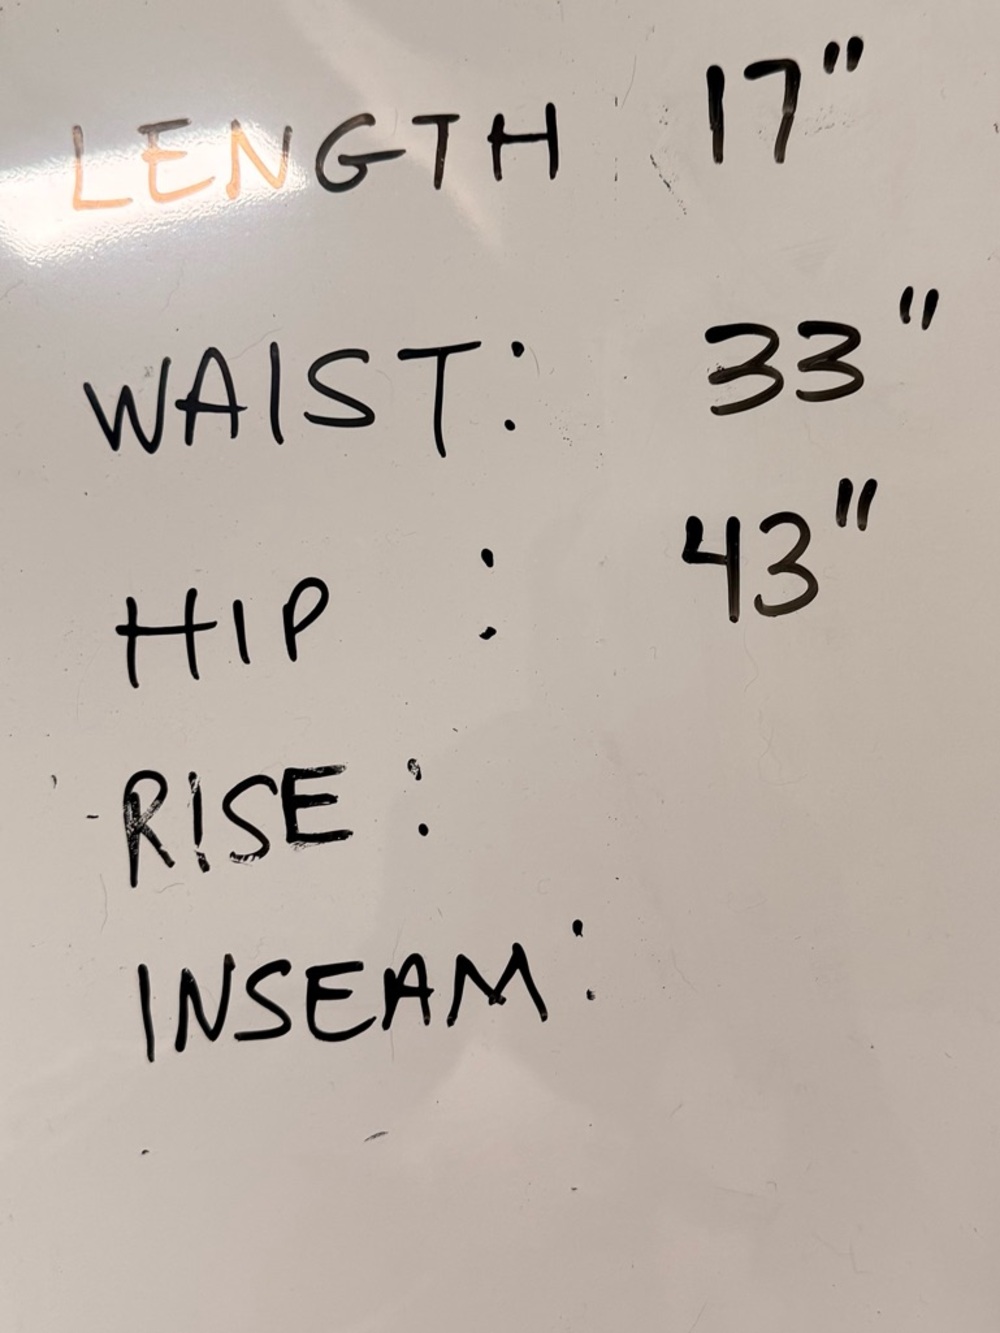 LENGTH : 17"
WAIST: 33"
HIP : 43"
RISE:
INSEAM: